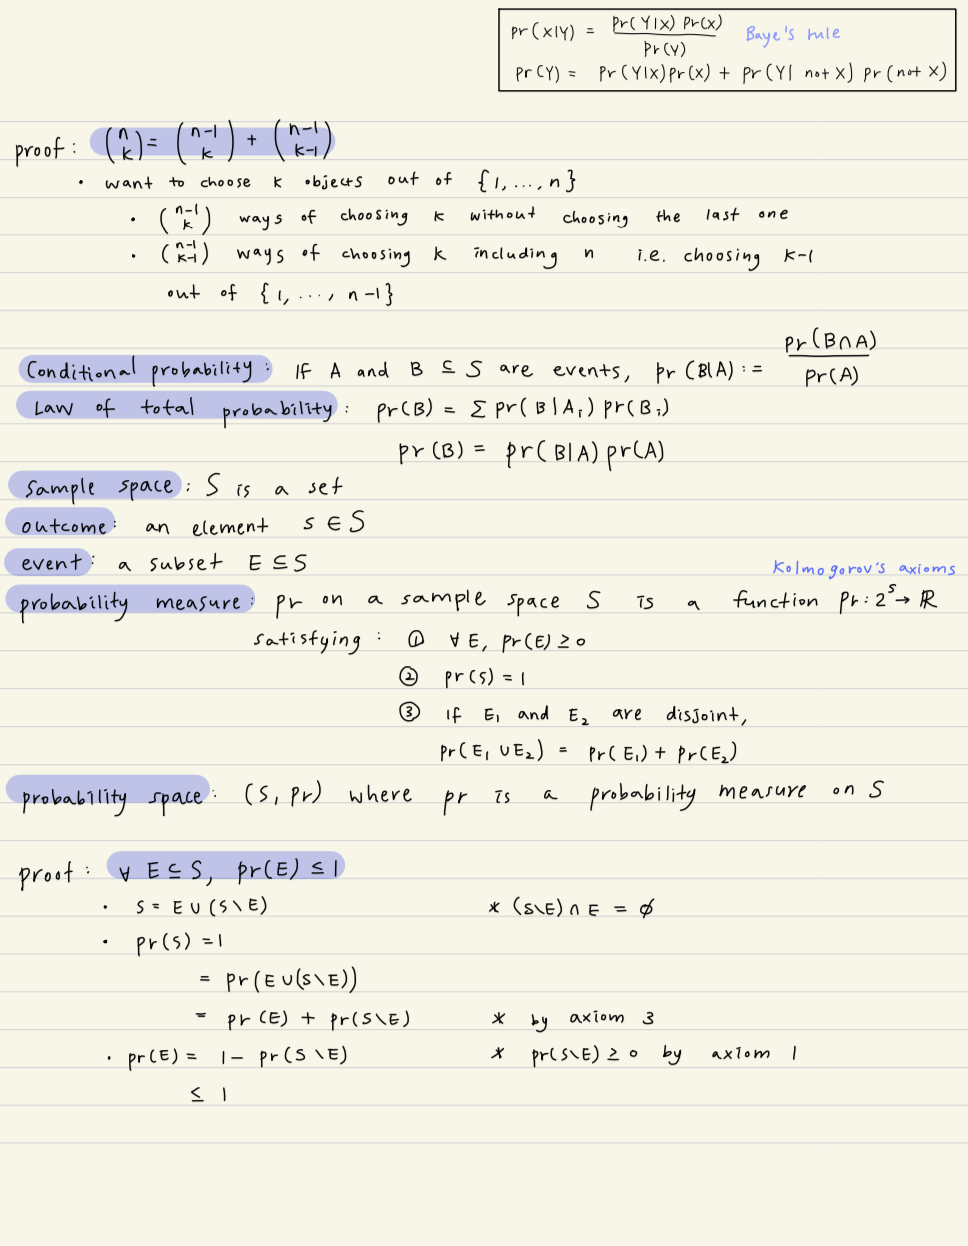 pr(X|Y) = pr(Y|X) pr(X) / pr(Y) Baye's rule
pr(Y) = pr(Y|X)pr(X) + pr(Y| not X) pr(not X)
proof: (n k) = (n-1 k) + (n-1 k-1)
• want to choose k objects out of {1,...,n}
• (n-1 k) ways of choosing k without choosing the last one
• (n-1 k-1) ways of choosing k including n i.e. choosing k-1
out of {1,..., n-1}
Conditional probability: If A and B ⊆ S are events, pr(B|A) := pr(B∩A) / pr(A)
Law of total probability: pr(B) = Σ pr(B|Aᵢ) pr(Bᵢ)
pr(B) = pr(B|A) pr(A)
Sample space: S is a set
outcome: an element s ∈ S
event: a subset E ⊆ S
Kolmogorov's axioms
probability measure: pr on a sample space S is a function pr: 2^S → ℝ
satisfying: ① ∀ E, pr(E) ≥ 0
② pr(S) = 1
③ if E₁ and E₂ are disjoint,
pr(E₁ ∪ E₂) = pr(E₁) + pr(E₂)
probability space: (S, pr) where pr is a probability measure on S
proof: ∀ E ⊆ S, pr(E) ≤ 1
• S = E ∪ (S\E) * (S\E) ∩ E = ∅
• pr(S) = 1
= pr(E ∪ (S\E))
= pr(E) + pr(S\E) * by axiom 3
• pr(E) = 1 - pr(S\E) * pr(S\E) ≥ 0 by axiom 1
≤ 1